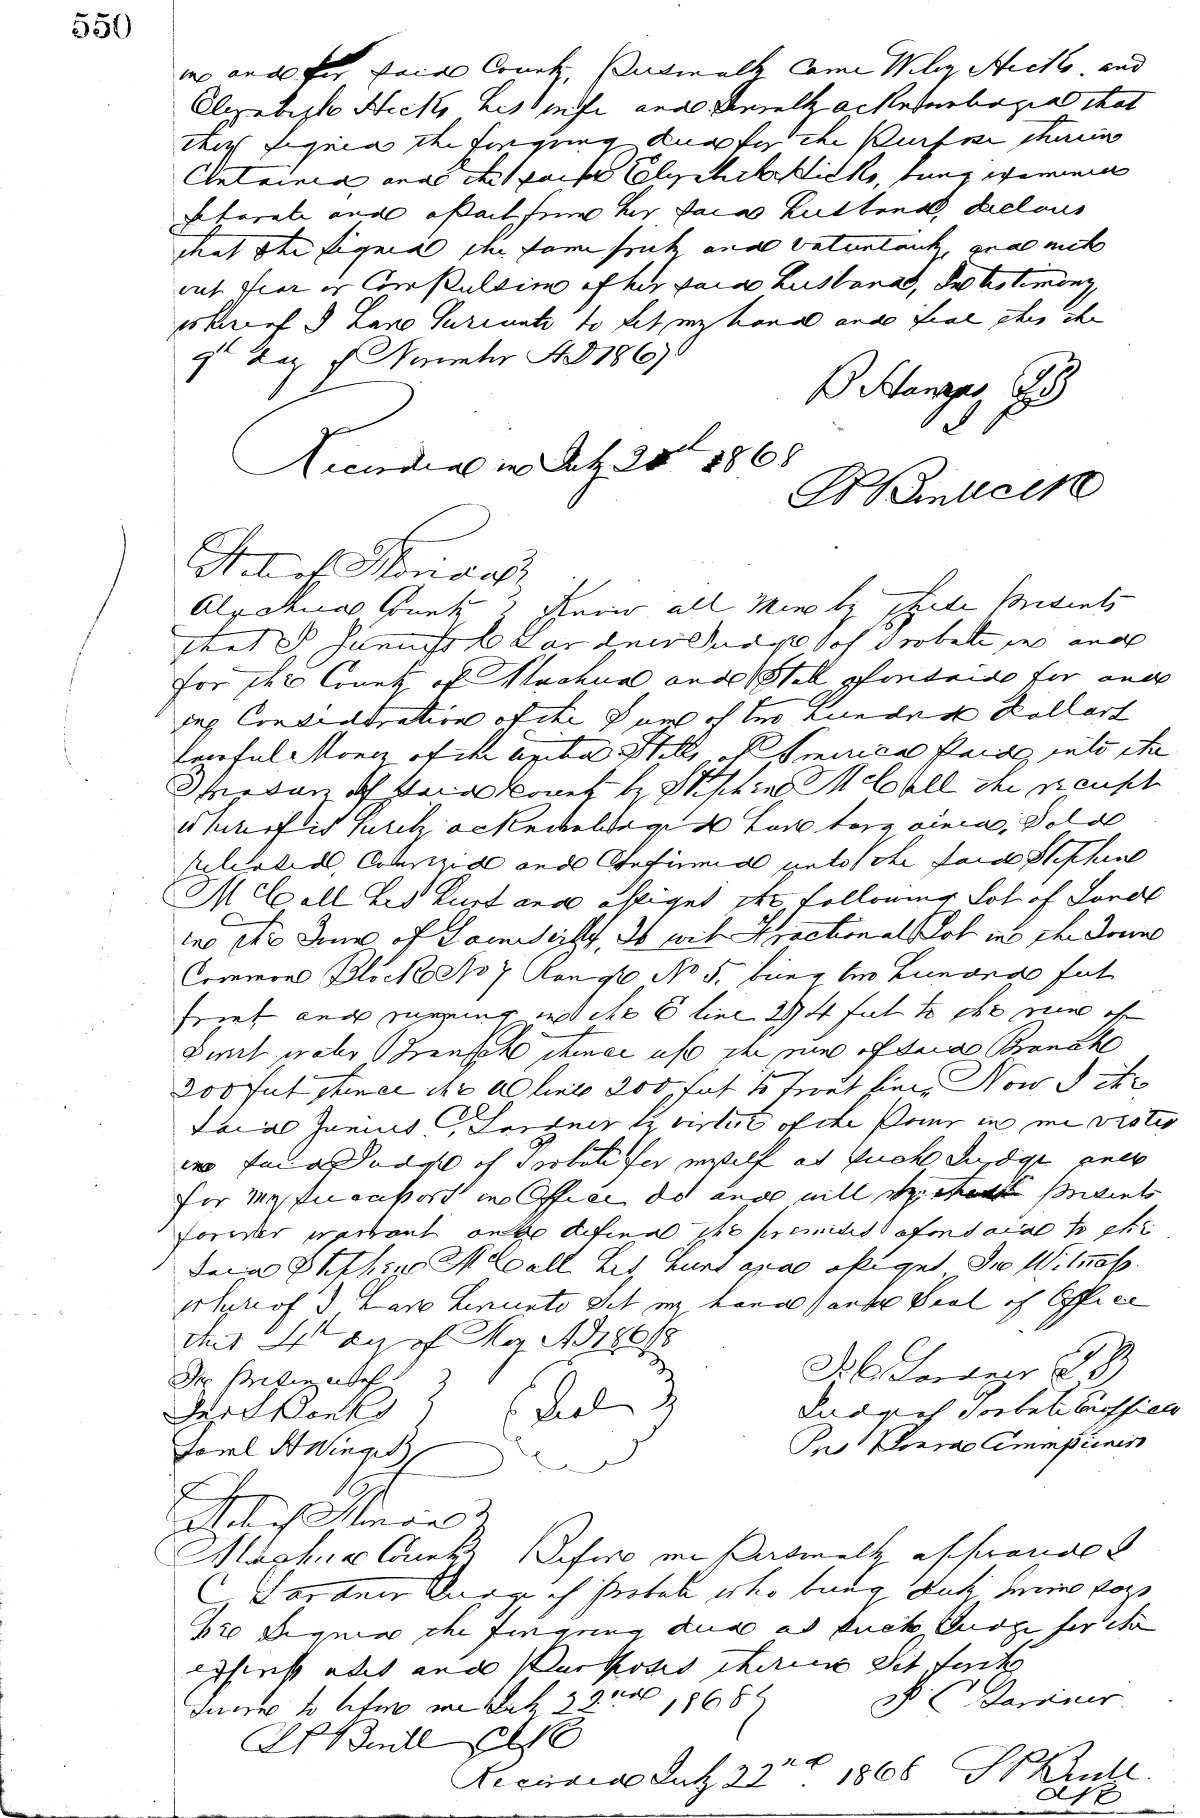 550
in and for said County, Personally Came Wiley Hicks and
Elizabeth Hicks his wife and severally acknowledged that
they signed the foregoing deed for the Purpose therein
Contained and the said Elizabeth Hicks, being examined
separate and apart from her said husband, declares
that she signed the same freely and voluntarily, and with
out fear or Compulsion of her said husband, In testimony
whereof I have hereunto to set my hand and seal this the
9th day of November AD 1867
B
Recorded in July 20th 1868
State of Florida
Alachua County Know all Men by these Presents
that I Junius C Gardner Judge of Probate in and
for the County of Alachua and State aforesaid for and
in Consideration of the Sum of two hundred Dollars
lawful Money of the United States of America Paid into the
Treasury of said County by Stephen McCall the receipt
whereof is hereby acknowledged have bargained, Sold
released, Conveyed and Confirmed unto the said Stephen
McCall his heirs and assigns the following Lot of Land
in the Town of Gainesville, To wit Fractional Lot in the Town
Common Block No 7 Range No 5, being two hundred feet
front and running on the E line 274 feet to the run of
Sweet water Branch thence up the run of said Branch
200 feet thence the W line 200 feet to front line, Now I the
said Junius C, Gardner by virtue of the Power in me vested
in said Judge of Probate for myself as such Judge and
for my successors in Office do and will by these presents
forever warrant and defend the premises aforesaid to the
said Stephen McCall his heirs and assigns In Witness
whereof I have hereunto Set my hand and Seal of Office
this 4th day of May AD 1868
In Presence of
Banks
Saml H Winges
Seal
J. C. Gardner
Judge of Probate Exofficio
Pres Board Commissioners
State of Florida
Alachua County Before me Personally appeared J
C, Gardner Judge of Probate who being duly sworn says
he Signed the foregoing deed as such Judge for the
express uses and Purposes therein Set forth
Sworn to before me July 22nd 1868 J C Gardner
Clk
Recorded July 22nd 1868
Clk